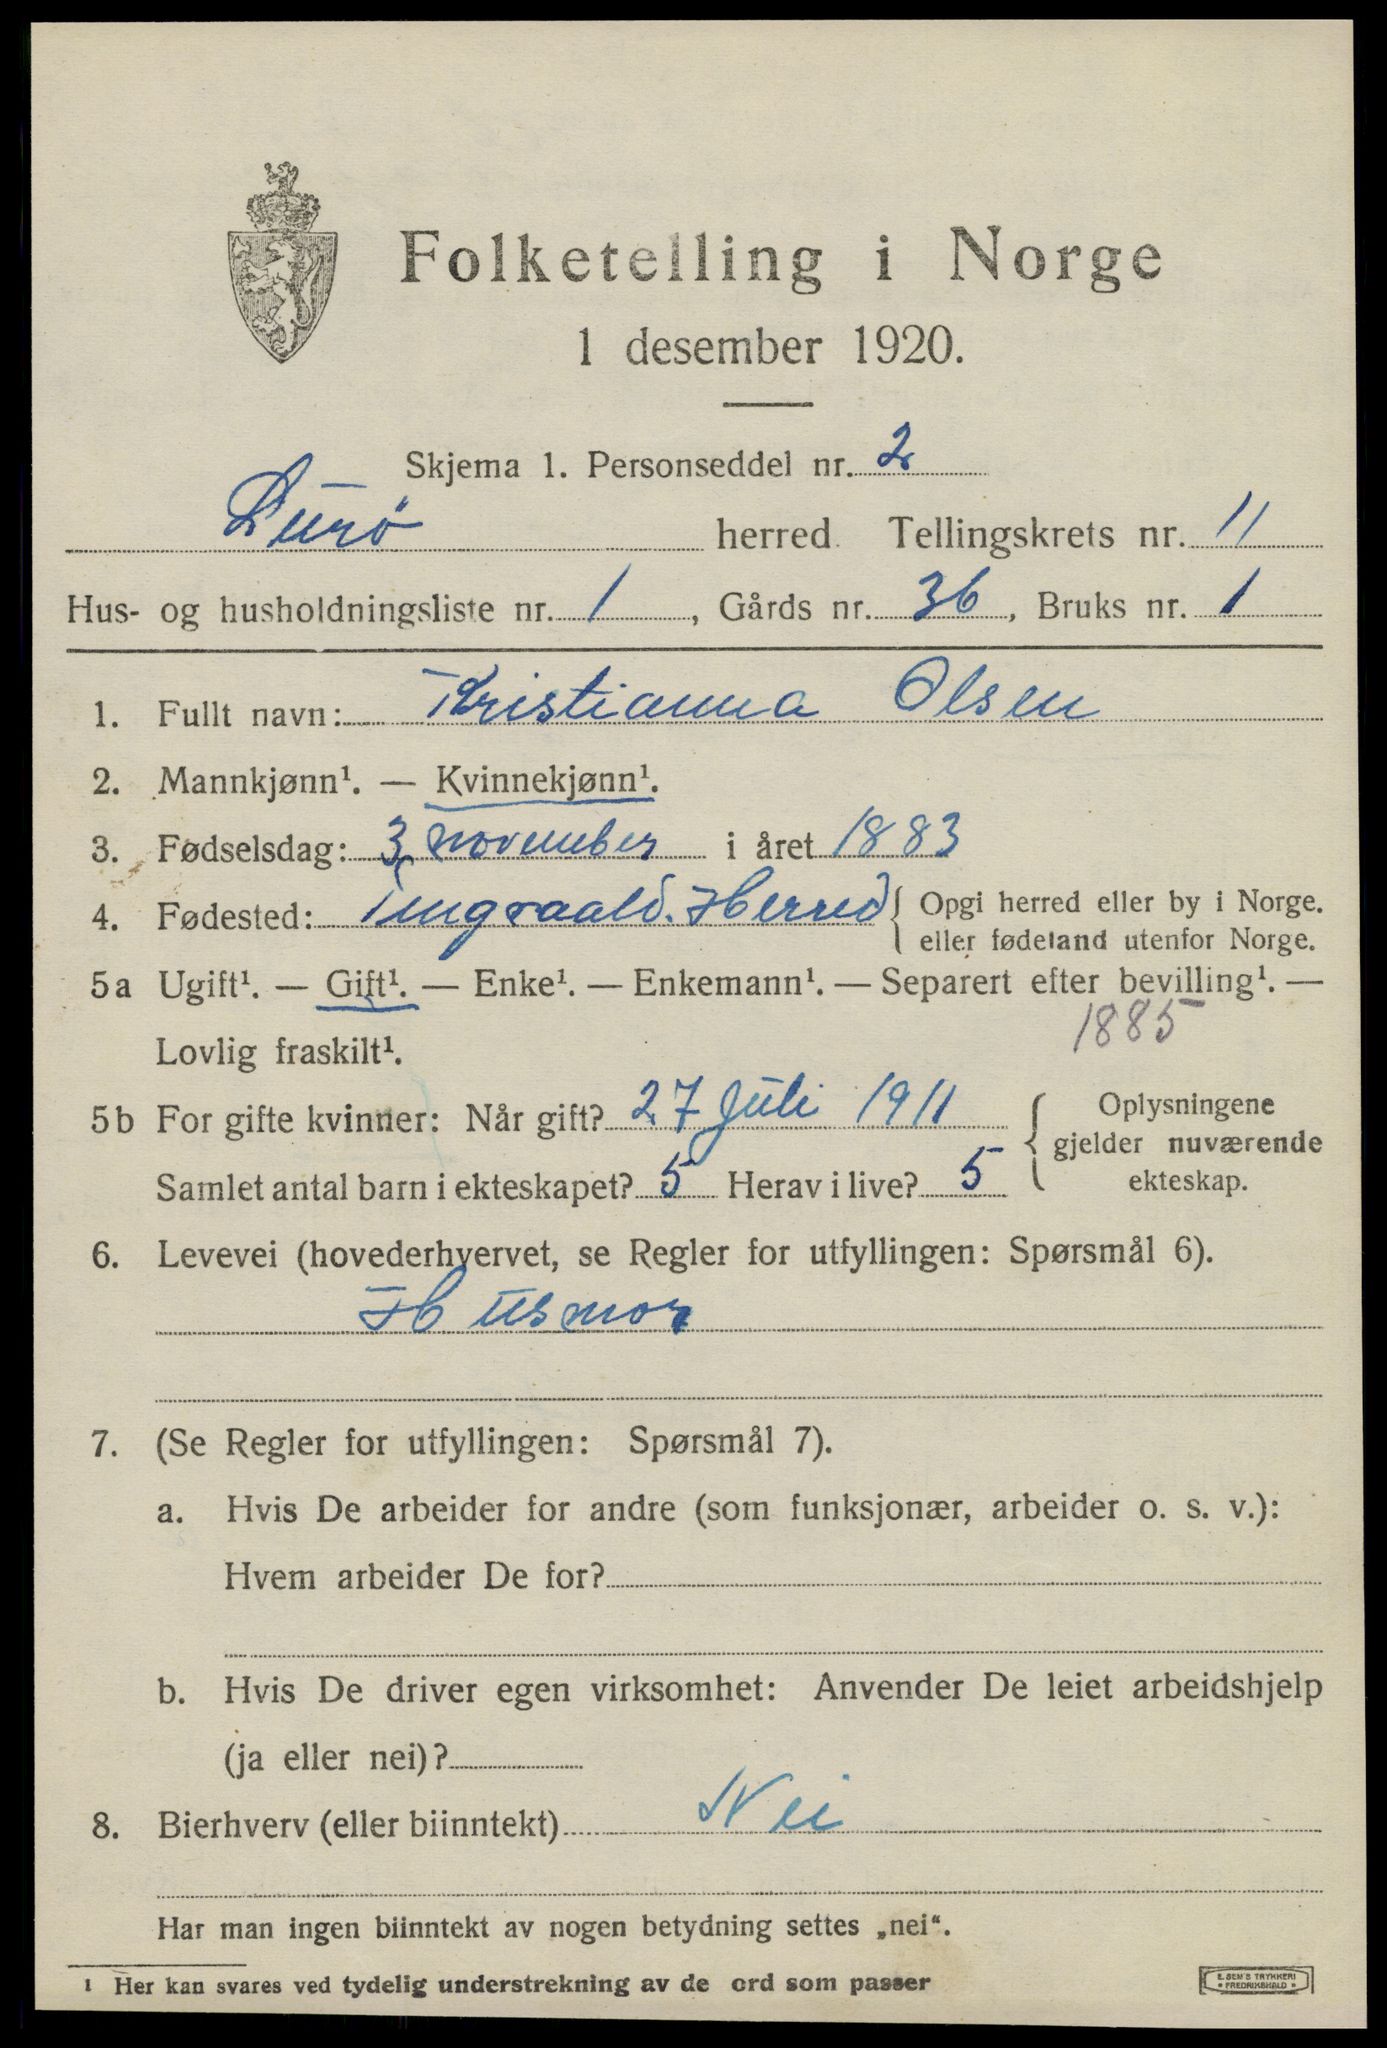 Folketelling i Norge
1 desember 1920.
Skjema 1. Personseddel nr. 2
Lurö herred. Tellingskrets nr. 11
Hus- og husholdningsliste nr. 1, Gårds nr. 36, Bruks nr. 1
1. Fullt navn: Kristianna Olsen
2. Mannkjønn¹. — Kvinnekjønn¹.
3. Fødselsdag: 3 november i året 1883
4. Fødested: Herred { Opgi herred eller by i Norge.
eller fødeland utenfor Norge.
5a Ugift¹. — Gift¹. — Enke¹. — Enkemann¹. — Separert efter bevilling¹. —
Lovlig fraskilt¹. 1885
5b For gifte kvinner: Når gift? 27 Juli 1911 { Oplysningene
gjelder nuværende
Samlet antal barn i ekteskapet? 5 Herav i live? 5 ekteskap.
6. Levevei (hovederhvervet, se Regler for utfyllingen: Spørsmål 6).
Husmor
7. (Se Regler for utfyllingen: Spørsmål 7).
a. Hvis De arbeider for andre (som funksjonær, arbeider o. s. v.):
Hvem arbeider De for?
b. Hvis De driver egen virksomhet: Anvender De leiet arbeidshjelp
(ja eller nei)?
8. Bierhverv (eller biinntekt) Nei
Har man ingen biinntekt av nogen betydning settes „nei“.
1 Her kan svares ved tydelig understrekning av de ord som passer
E. SEM'S TRYKKERI
• FREDRIKSHALD •